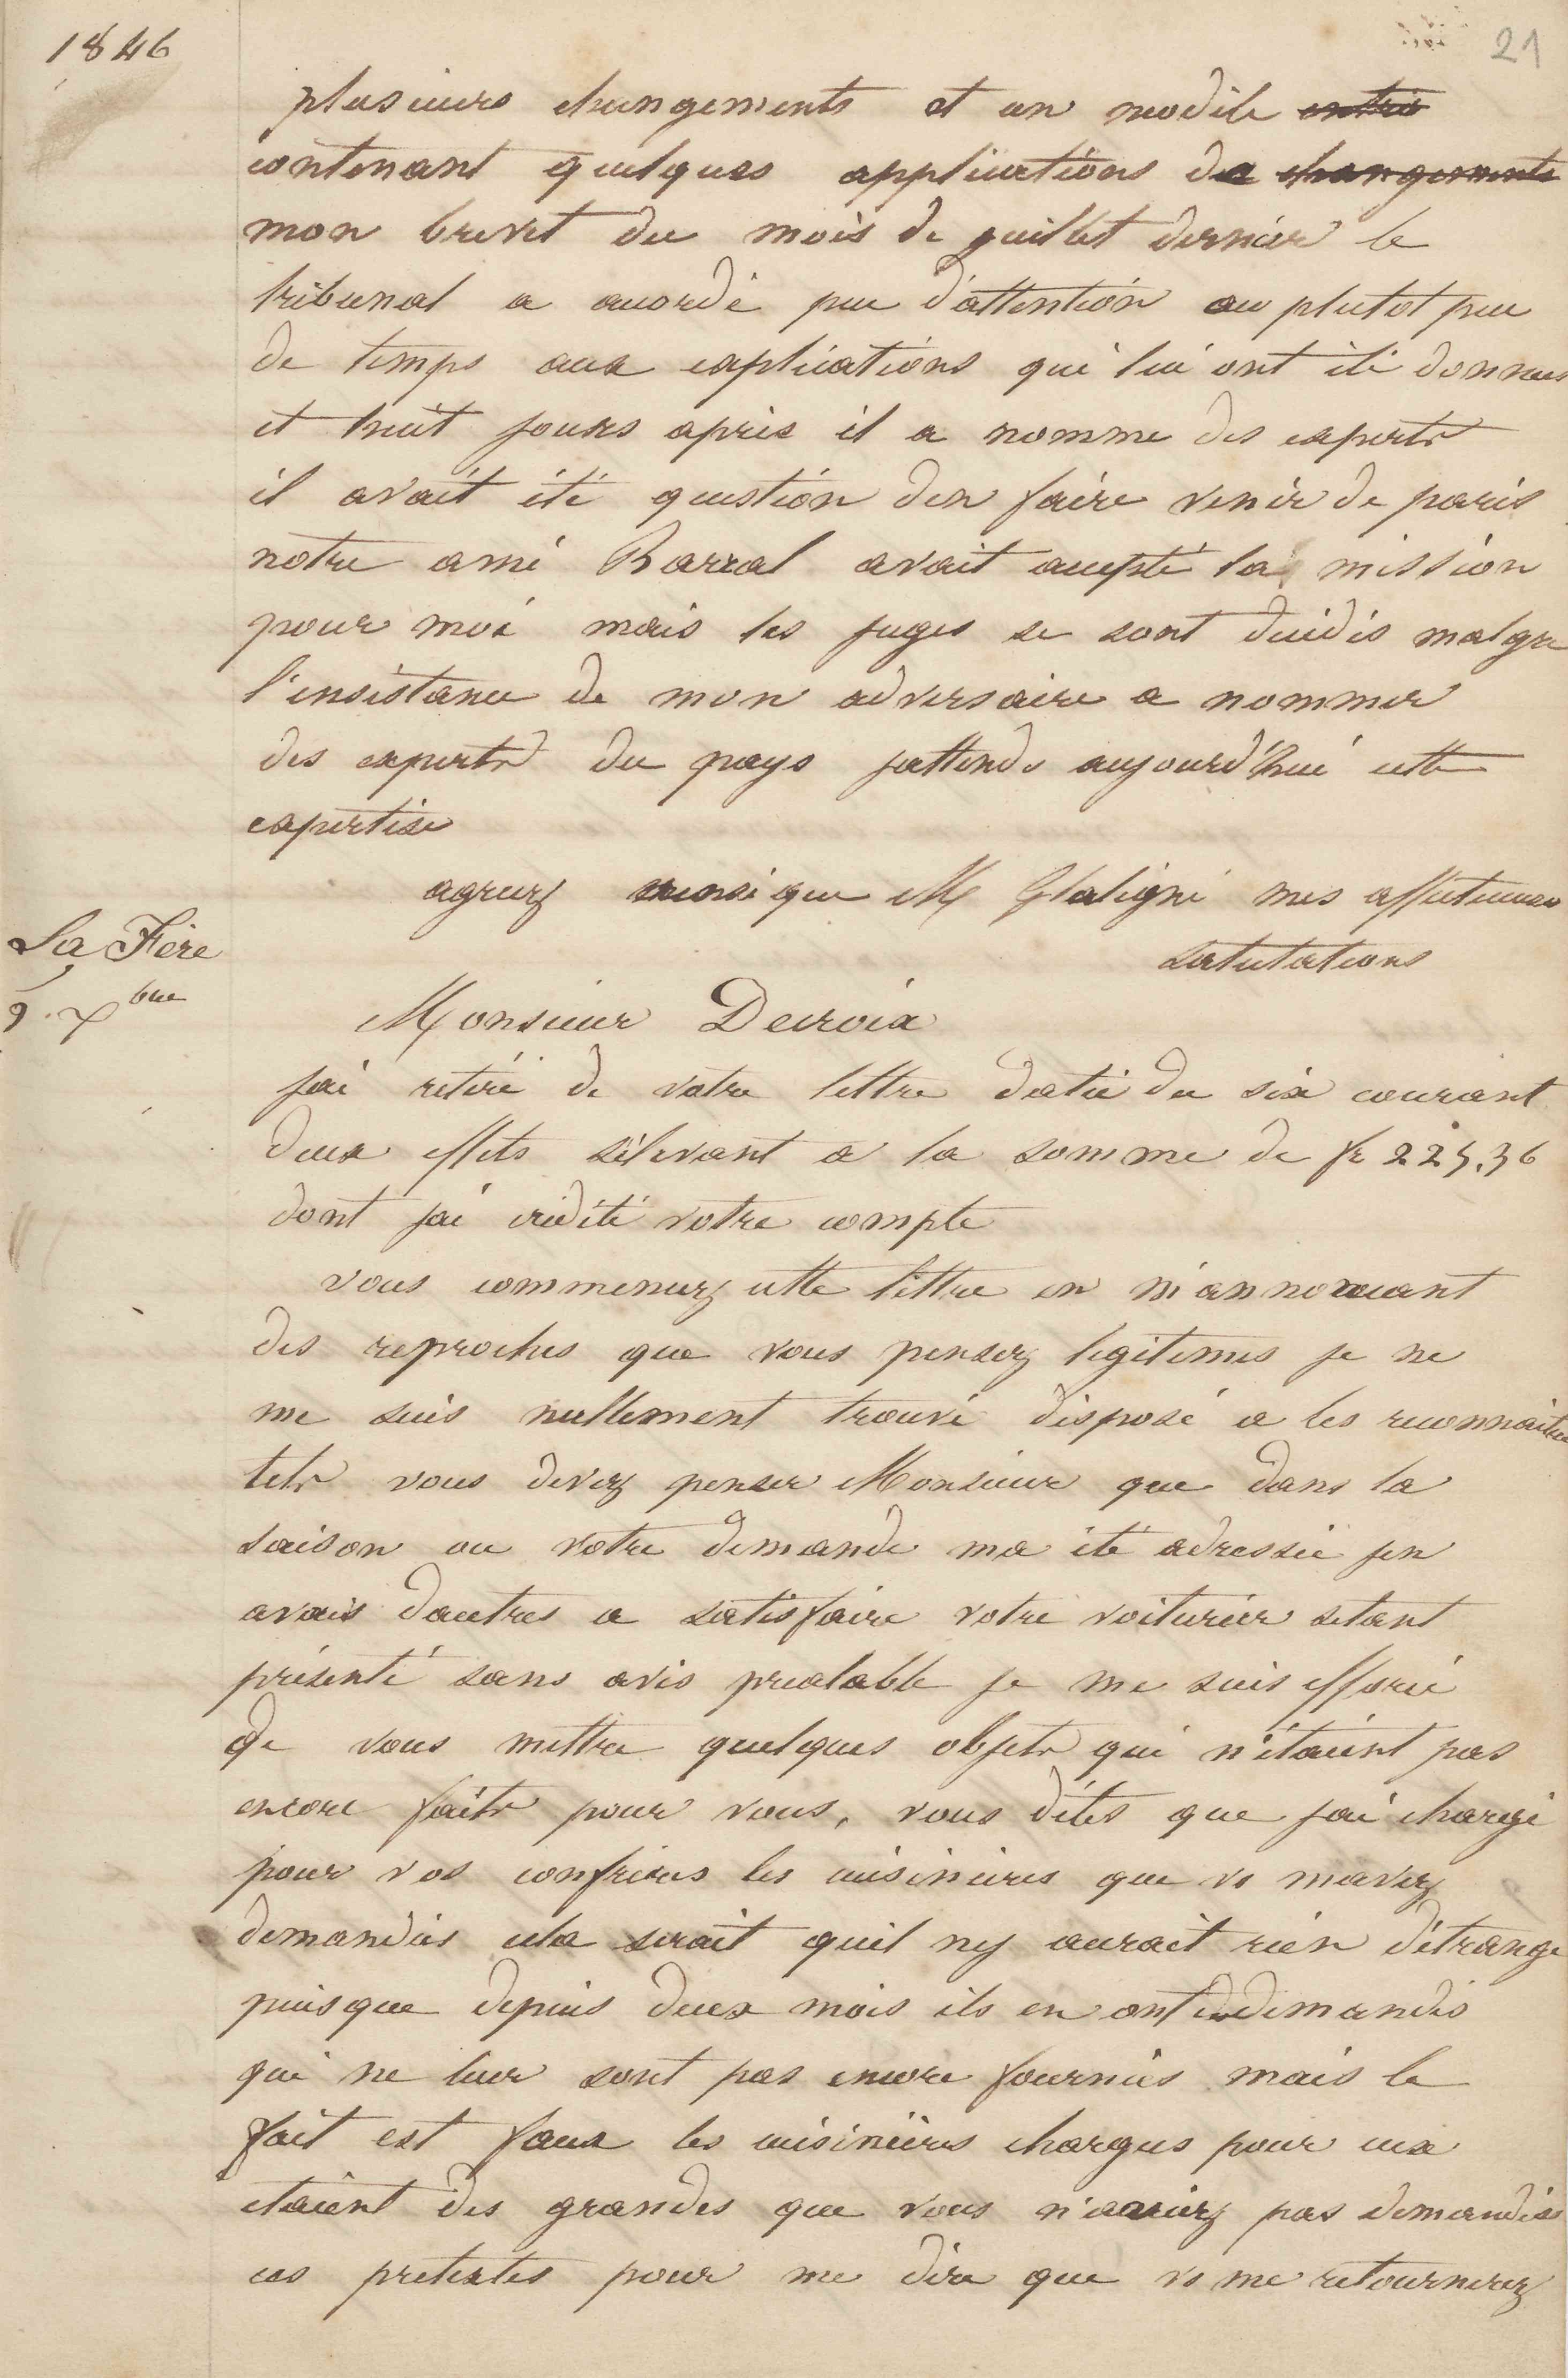 1846
21
plusieurs changements et un modèle entrè
contenant quelques applications de changements
mon brevet du mois de juillet dernier le
tribunal a acordé peu d'attention ou plutot peu
de temps aux explications qui lui ont été donnees
et huit jours après il a nomme des experts
il avait été question den faire venir de paris
notre ami Barral avait accepté la mission
pour moi mais les juges se sont décidés malgre
l'insistance de mon adversaire a nommer
des experts du pays jattends aujourd'hui cette
expertise
agreez ainsi que M Glatigni mes affectueuses
salutations
La Fère
9 Xbre
Monsieur Decroix
jai retiré de votre lettre datée du six courant
deux effets s'élevant a la somme de fr 225,36
dont jai crédité votre compte
vous commencez cette lettre en m'annoncant
des reproches que vous pensez legitimes je ne
me suis nullement trouvé disposé a les reconnaitre
tels vous devez penser Monsieur que dans la
saison ou votre demande ma été adressée jen
avais dautres a satisfaire votre voiturier setant
présenté sans avis prealable je me suis efforcé
de vous mettre quelques objets qui n'étaient pas
encore faits pour vous, vous dites que jai chargé
pour vos confrères les cuisinieres que vs mavez
demandées cela serait quil ny aurait rien d'étrange
puisque depuis deux mois ils en ont demandés
qui ne leur sont pas encore fournies mais le
fait est faux les cuisinières chargees pour eux
etaient des grandes que vous n'aviez pas demandées
ces pretextes pour me dire que vs me retournerez